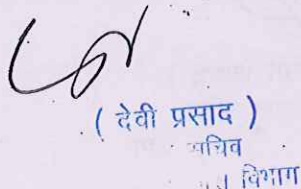 ( देवी प्रसाद )
सचिव
विभाग